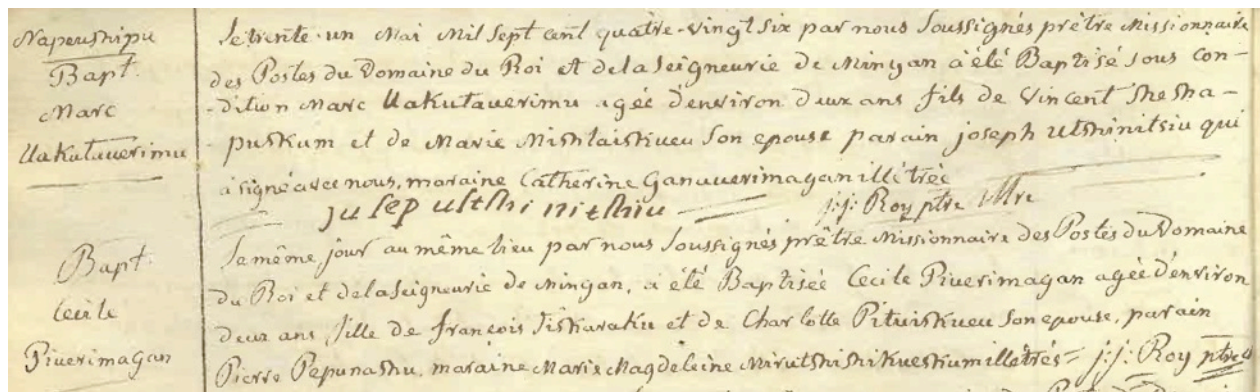 Napeushipu
Bapt.
Marc
Uakutauerimu
Le trente-un Mai Mil Sept cent quatre-vingt six par nous Soussignés prêtre Missionnaire
des Postes du Domaine du Roi et de la Seigneurie de Mingan à été Baptisé sous con-
-dition Marc Uakutauerimu agée d'environ deux ans fils de Vincent Shesha-
puskum et de Marie Mishtaiskueu Son epouse parain joseph Utshinitsiu qui
à signé avec nous, maraine Catherine Ganauerimagan illétrée
ju sep ultshi nitshiu j:j: Roy ptre Mre
Bapt.
Cecile
Piuerimagan
Le même jour au même lieu par nous Soussignés prêtre Missionnaire des Postes du Domaine
du Roi et de la Seigneurie de Mingan, a été Baptisée Cecile Piuerimagan agée d'environ
deux ans fille de françois Tiskaraku et de Charlotte Pituiskueu Son epouse, parain
Pierre Pepunashu, maraine Marie Magdeleine Mirutshishikueskum illetrés = j:j: Roy ptre